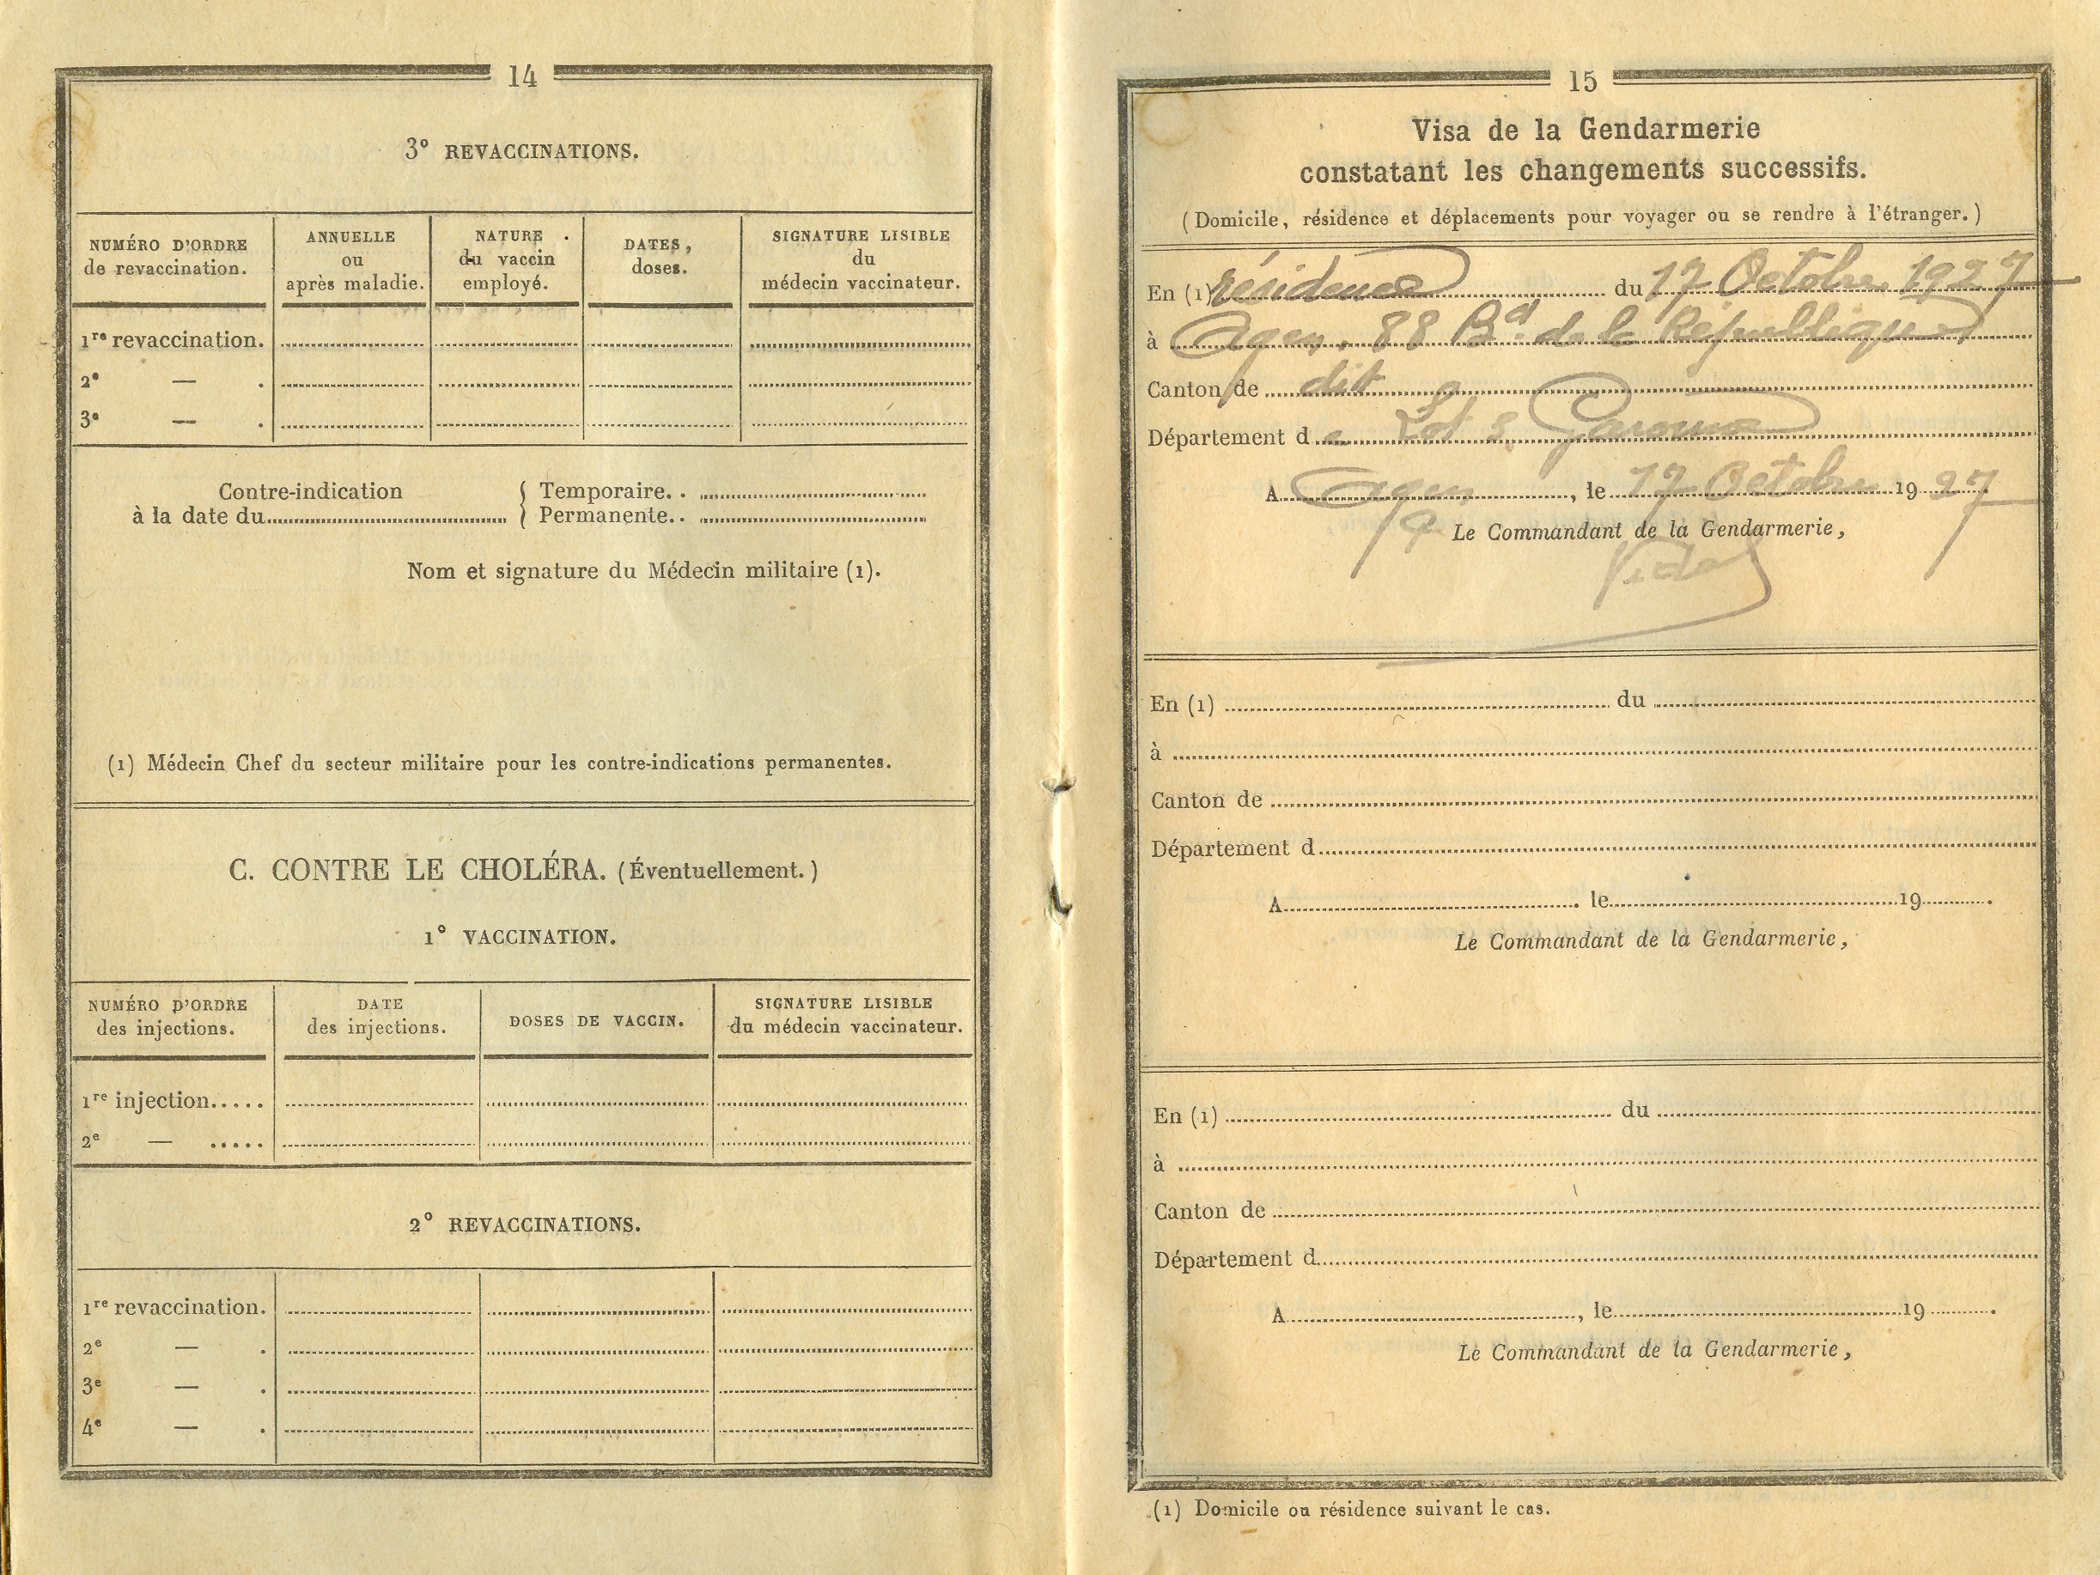 14
3° REVACCINATIONS.
NUMÉRO D'ORDRE
de revaccination.
ANNUELLE
ou
après maladie.
NATURE
du vaccin
employé.
DATES,
doses.
SIGNATURE LISIBLE
du
médecin vaccinateur.
1re revaccination.
2e — .
3e — .
Contre-indication
à la date du
Temporaire..
Permanente..
Nom et signature du Médecin militaire (1).
(1) Médecin Chef du secteur militaire pour les contre-indications permanentes.
C. CONTRE LE CHOLÉRA. (Éventuellement.)
1° VACCINATION.
NUMÉRO D'ORDRE
des injections.
DATE
des injections.
DOSES DE VACCIN.
SIGNATURE LISIBLE
du médecin vaccinateur.
1re injection.....
2e — .....
2° REVACCINATIONS.
1re revaccination.
2e — .
3e — .
4e — .
15
Visa de la Gendarmerie
constatant les changements successifs.
(Domicile, résidence et déplacements pour voyager ou se rendre à l'étranger.)
En (1) résidence du 17 Octobre 1927
à Agen, 88 Bd. de la République
Canton de dit
Département de Lot & Garonne
A Agen, le 17 Octobre 1927
Le Commandant de la Gendarmerie,
Vidal
En (1) du
à
Canton de
Département d
A . le 19 .
Le Commandant de la Gendarmerie,
En (1) du
à
Canton de
Département d
A , le 19 .
Le Commandant de la Gendarmerie,
(1) Domicile ou résidence suivant le cas.